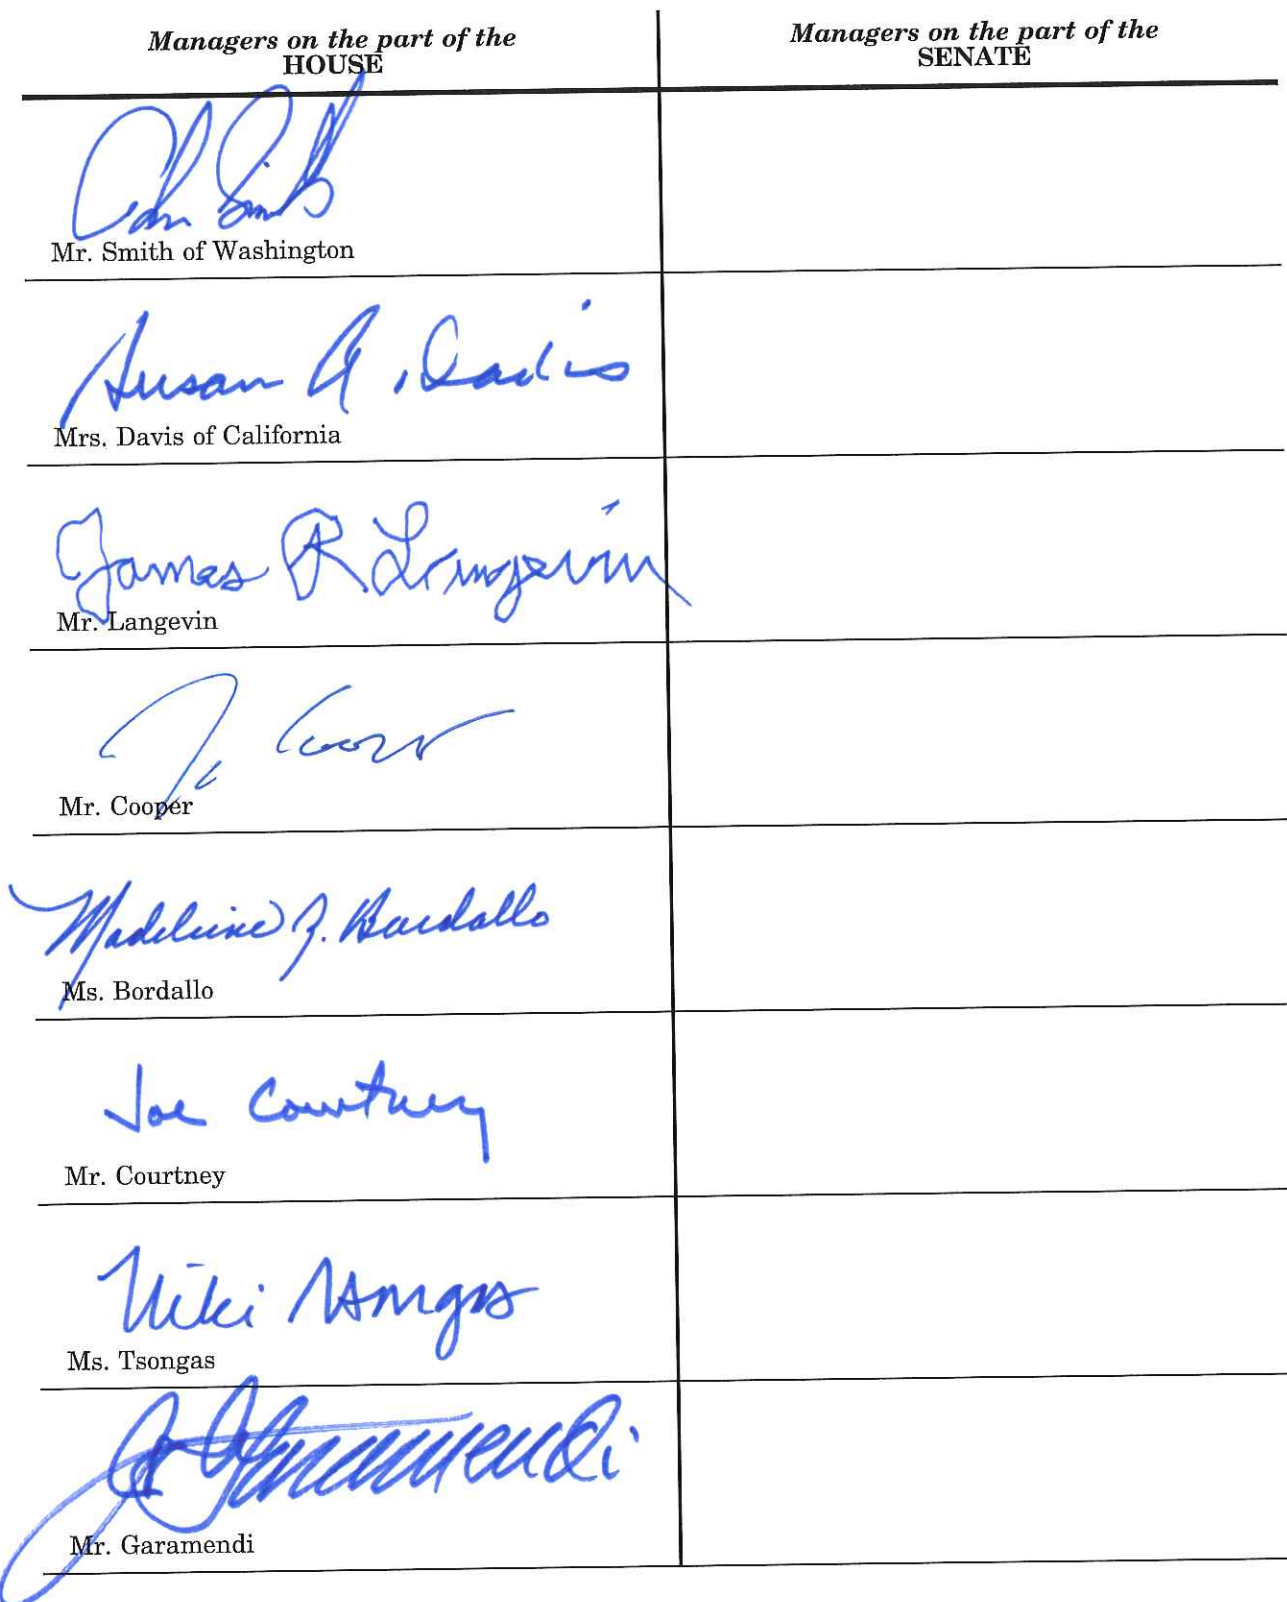 Managers on the part of the
HOUSE
Managers on the part of the
SENATE
Adam Smith
Mr. Smith of Washington
Susan A. Davis
Mrs. Davis of California
James R Langevin
Mr. Langevin
Cooper
Mr. Cooper
Madeleine Z. Bordallo
Ms. Bordallo
Joe Courtney
Mr. Courtney
Niki Tsongas
Ms. Tsongas
Garamendi
Mr. Garamendi